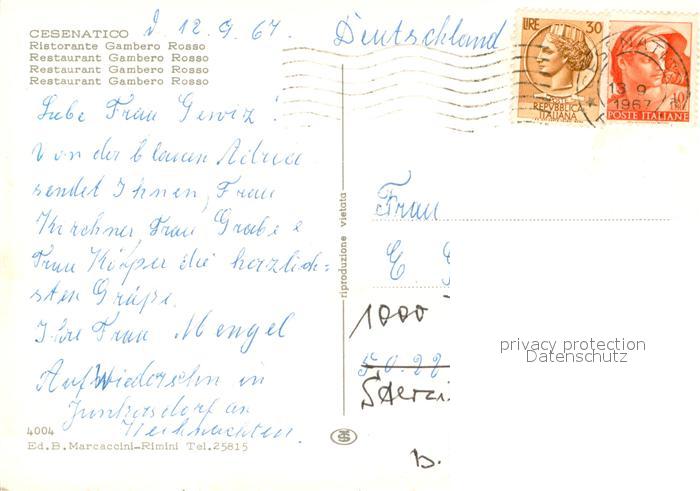 CESENATICO
Ristorante Gambero Rosso
Restaurant Gambero Rosso
Restaurant Gambero Rosso
Restaurant Gambero Rosso
d. 12.9.67.
Deutschland
LIRE 30
REPVBBLICA
ITALIANA
13 9
1967
POSTE ITALIANE
Liebe Frau !
Von der blauen Adria
sendet Ihnen, Frau
Kirchner Frau Grabe
Frau Körper die herzlich=
sten Grüße.
Ihre Frau Mengel
Auf Wiedersehn in
Junkersdorf an
Weihnachten.
4004
Ed.B.Marcaccini-Rimini Tel.25815
riproduzione vietata
Frau
E.
1000
5022
B.
privacy protection
Datenschutz